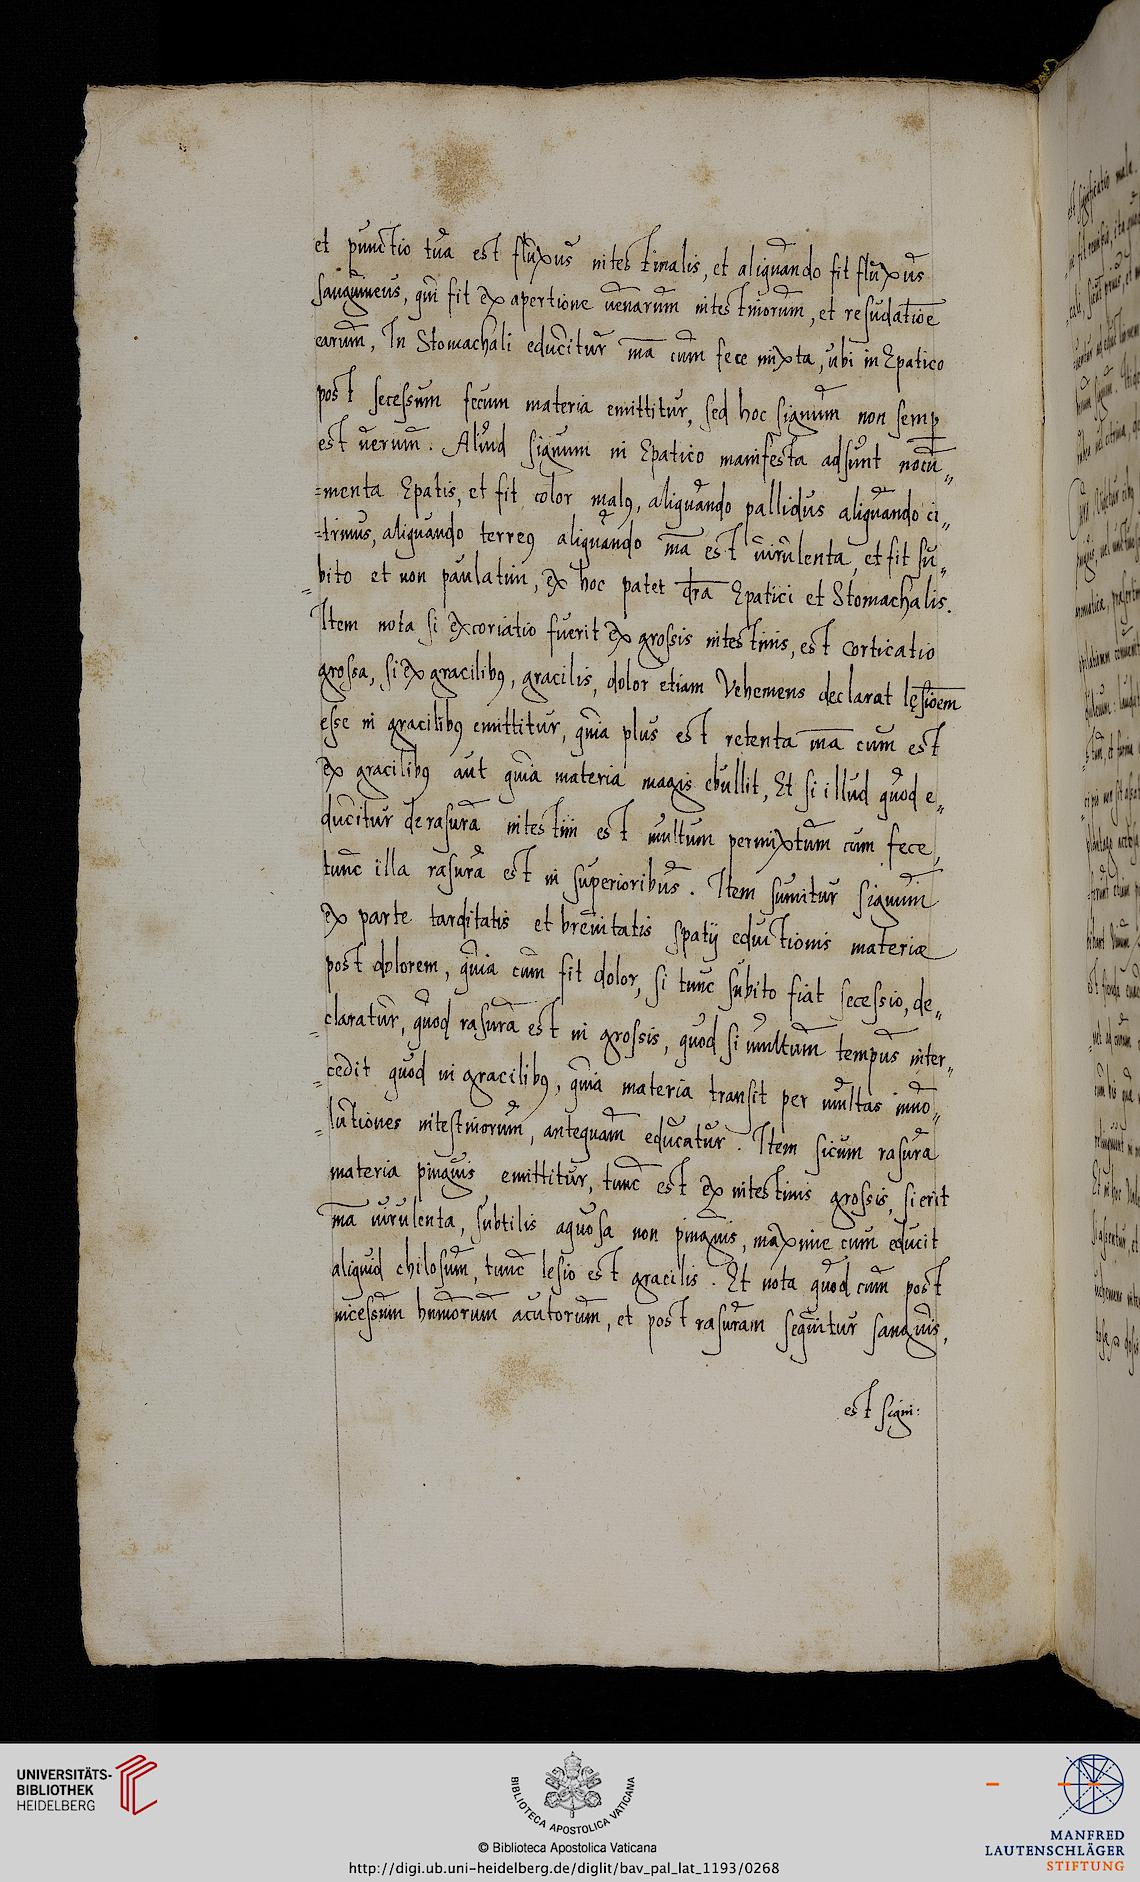 et punctio tua est fluxus intestinalis, et aliquando fit fluxus
sanguineus, qui fit ex apertione venarum intestinorum, et resudatioe
earum, In Stomachali educitur ma cum fece mixta, ubi in Epatico
post secessum fecum materia emittitur, sed hoc signum non semp
est verum. Aliud signum in Epatico manifesta adsunt nocu„
=menta Epatis, et fit color malus, aliquando pallidus aliquando ci„
=trinus, aliquando terreus aliquando ma est virulenta, et fit su„
bito et non paulatim, ex hoc patet dra Epatici et Stomachalis.
Item nota si excoriatio fuerit ex grossis intestinis, est corticatio
grossa, si ex gracilibus, gracilis, dolor etiam vehemens declarat lęsioem
esse in gracilibus emittitur, quia plus est retenta ma cum est
ex gracilibus aut quia materia magis ebullit, Et si illud quod e„
ducitur de rasura intestini est multum permixtum cum fece,
tunc illa rasura est in superioribus. Item sumitur signum
ex parte tarditatis et brevitatis spatij eductionis materiæ
post dolorem, quia cum fit dolor, si tunc subito fiat secessio, de„
claratur, quod rasura est in grossis, quod si multum tempus inter„
cedit quod in gracilibus, quia materia transit per multas invo„
lutiones intestinorum, antequam educatur. Item si cum rasura
materia pinguis emittitur, tunc est ex intestinis grossis, si erit
ma virulenta, subtilis aquosa non pinguis, maxime cum educit
aliquid chilosum, tunc lesio est gracilis. Et nota quod cum post
incessum humorum acutorum, et post rasuram sequitur sanguis,
est signi:
UNIVERSITÄTS-
BIBLIOTHEK
HEIDELBERG
BIBLIOTECA APOSTOLICA VATICANA
© Biblioteca Apostolica Vaticana
http://digi.ub.uni-heidelberg.de/diglit/bav_pal_lat_1193/0268
MANFRED
LAUTENSCHLÄGER
STIFTUNG